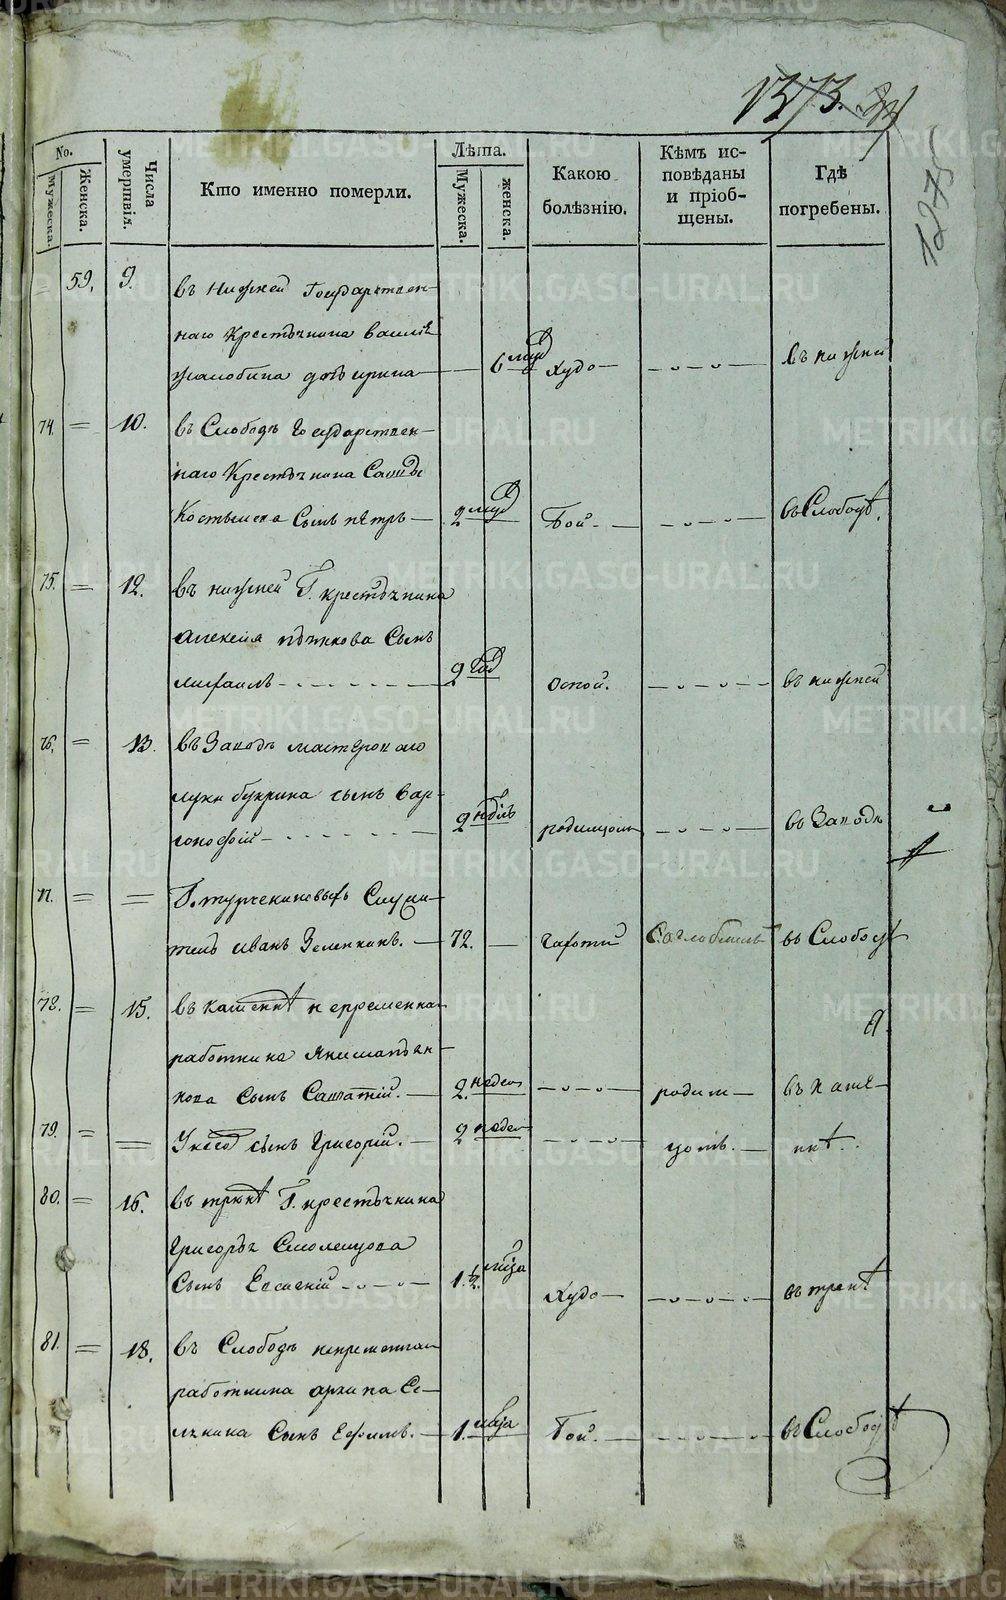 1373.
1275
No.
Мужеска.
Женска.
Числа умертвія.
Кто именно померли.
Лѣта.
Мужеска.
женска.
Какою болѣзнію.
Кѣмъ ис-
повѣданы
и пріоб-
щены.
Гдѣ
погребены.
59. 9. въ нижней Государствен-
наго крестьянина василія
дочь ирина — 6 мцд худо — въ нижней
74. = 10. въ Слободѣ Государствен-
наго крестьянина Саввы
Костылева Сынъ пётръ — 2 мцд Той. — въ Слободѣ.
75. = 12. въ нижней Г. крестьянина
алексѣя Сынъ
михаилъ 2 год оспой. въ нижней
76. = 13. въ Заводѣ мастероваго
луки букрина сынъ вар-
фоломей 2 недѣль родимцомъ въ Заводѣ
77. = = Г. турчениновыхъ Служи-
тель иванъ Зеленкинъ. — 72. — чахоти въ Слободѣ
78. = 15. въ каменкѣ непременна
работника
Сынъ Савватій. — 2. недел родим — въ каме-
79. = = У него сынъ Григорій. — 2 недел цомъ. — нкѣ.
80. = 16. въ трекѣ Г. крестьянина
Григорья Смоленцова
Сынъ Евсигній 1 1/2. мцза худо — въ трекѣ
81. = 18. въ Слободѣ непременнаго
работника архипа Се-
лькина Сынъ Ефимъ. — 1. мцза Той. — въ Слободѣ
METRIKI.GASO-URAL.RU